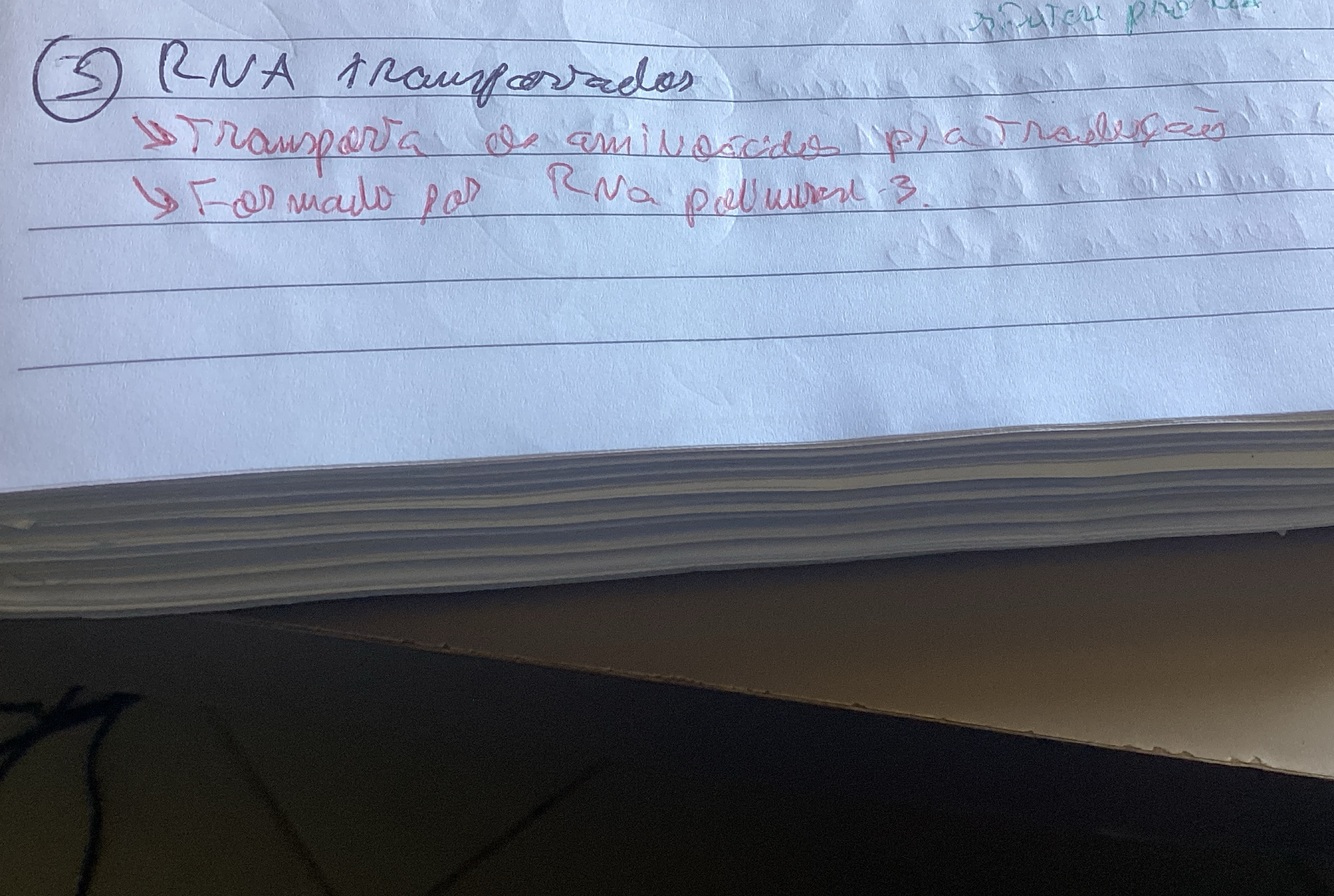 ③ RNA transportador
↳ Transporta os aminoácidos p/ a Tradução
↳ Formado por RNA polimerase 3.